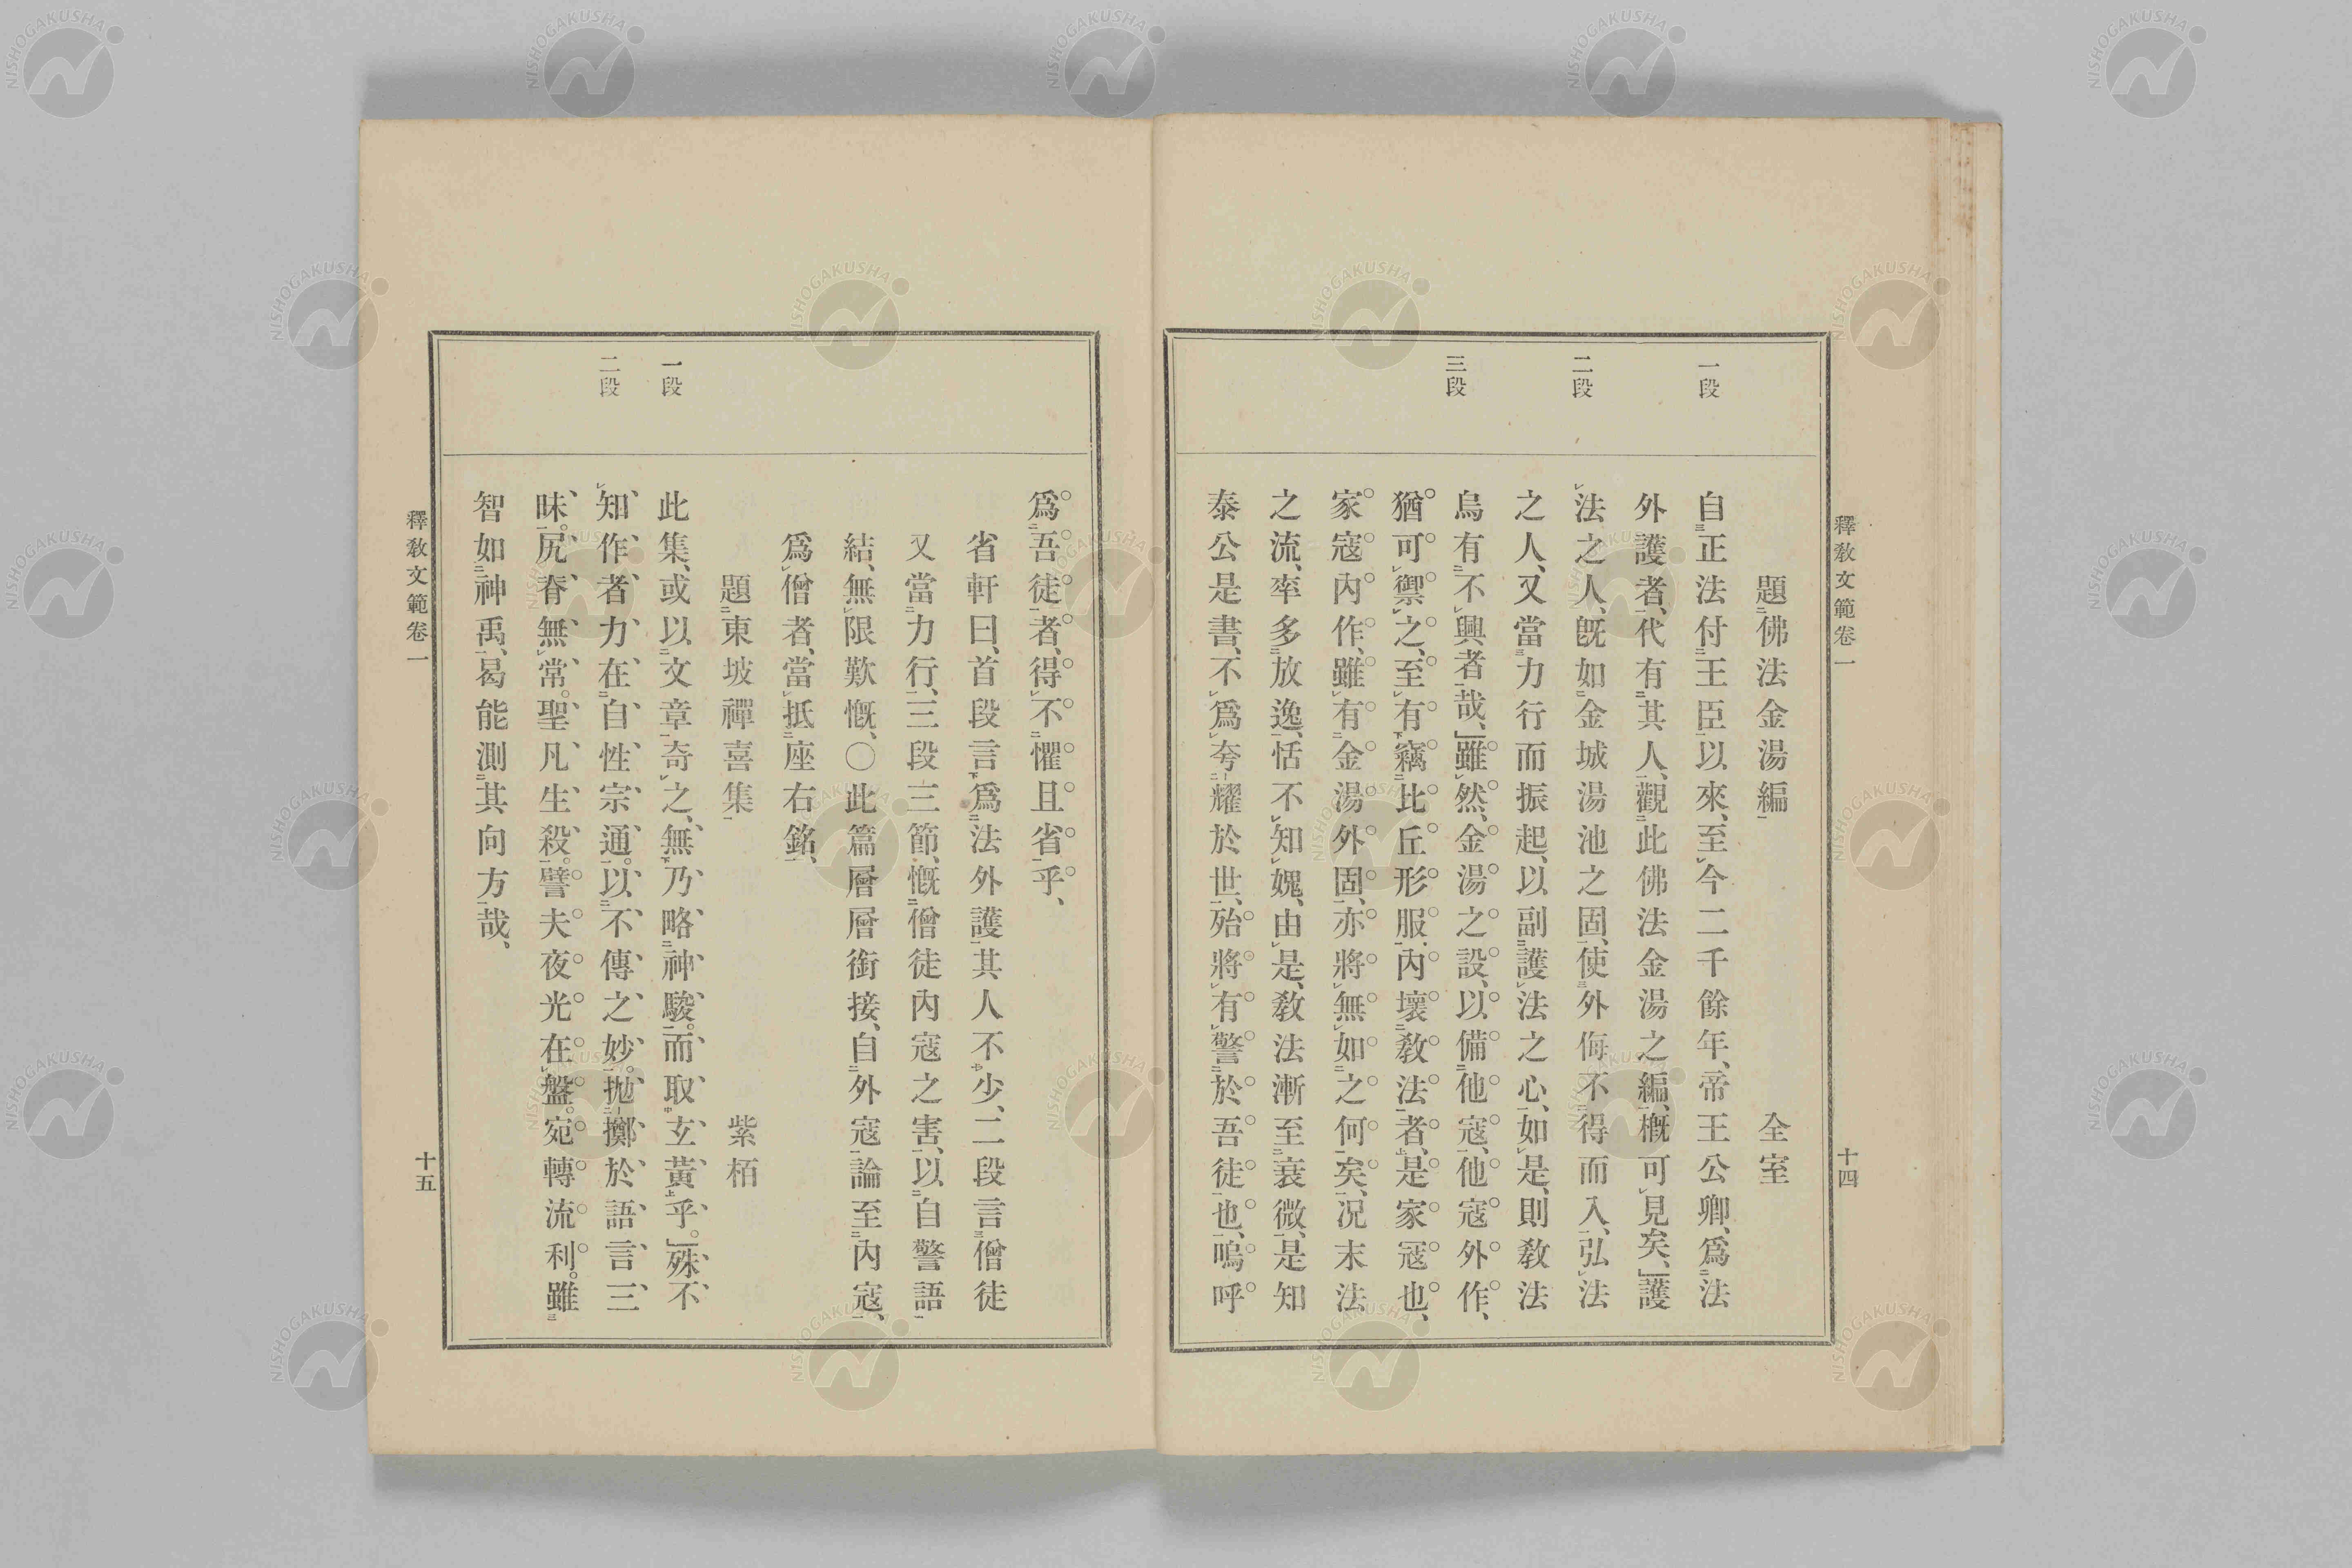 釋敎文範卷一
十四
一段
二段
三段
題佛法金湯編 全室
自正法付王臣以來、至今二千餘年、帝王公卿、爲法
外護者、代有其人、觀此佛法金湯之編、槪可見矣、」護
法之人、旣如金城湯池之固、使外侮不得而入、弘法
之人、又當力行而振起、以副護法之心、如是、則敎法
烏有不興者哉、」雖然、金湯之設、以備他寇、他寇外作、
猶可禦之、至有竊比丘形服、內壞敎法者、是家寇也、
家寇內作、雖有金湯外固、亦將無如之何矣、况末法
之流、率多放逸、恬不知媿、由是、敎法漸至衰微、是知
泰公是書、不爲夸耀於世、殆將有警於吾徒也、嗚呼
爲吾徒者、得不懼且省乎、
省軒曰、首段言爲法外護其人不少、二段言僧徒
又當力行、三段三節、慨僧徒內寇之害、以自警語
結、無限歎慨、〇此篇層層銜接、自外寇論至內寇、
爲僧者、當抵座右銘、
題東坡禪喜集 紫栢
一段
二段
此集、或以文章奇之、無乃略神駿。而取玄黃乎。」殊不
知作者力在自性宗通。以不傳之妙。拋擲於語言三
昧。尻脊無常。聖凡生殺。譬夫夜光在盤。宛轉流利。雖
智如神禹、曷能測其向方哉、
釋敎文範卷一
十五
NISHOGAKUSHA